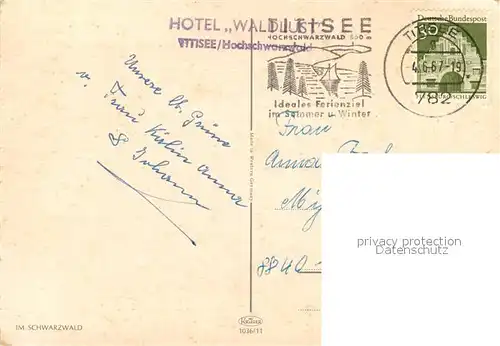 HOTEL „WALDLUST"
TITISEE/Hochschwarzwald
TITISEE
HOCHSCHWARZWALD 860 m
Ideales Ferienziel
im Sommer u. Winter
TITISEE
4.6.67-19
782
Deutsche Bundespost
Unsere lb. Grüsse
v. Frau Kälin Anna
& Johann
Frau
Anna
8840
Made in Western Germany
Krüger
1036/11
IM SCHWARZWALD
privacy protection
Datenschutz